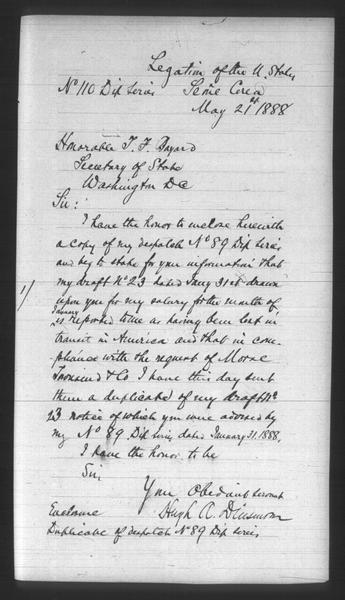 Legation of the U. States
No 110 Dip Series Seoul Corea
May 21st 1888
Honorable T. F. Bayard
Secretary of State
Washington DC
Sir:
I have the honor to inclose herewith
a copy of my despatch No 89 Dip Series
and beg to state for your information that
1/ my draft No 23 dated Jany 31st drawn
upon you for my salary for the month of
January
is reported to me as having been lost in
transit in America and that in com-
pliance with the request of Morse
Townsend & Co I have this day sent
them a duplicate of my draft No
23 notice of which you were advised by
my No 89 Dip Series dated January 31. 1888,
I have the honor to be
Sir,
Your Obedient Servant
Enclosure Hugh A. Dinsmore
Duplicate of despatch No 89 Dip Series